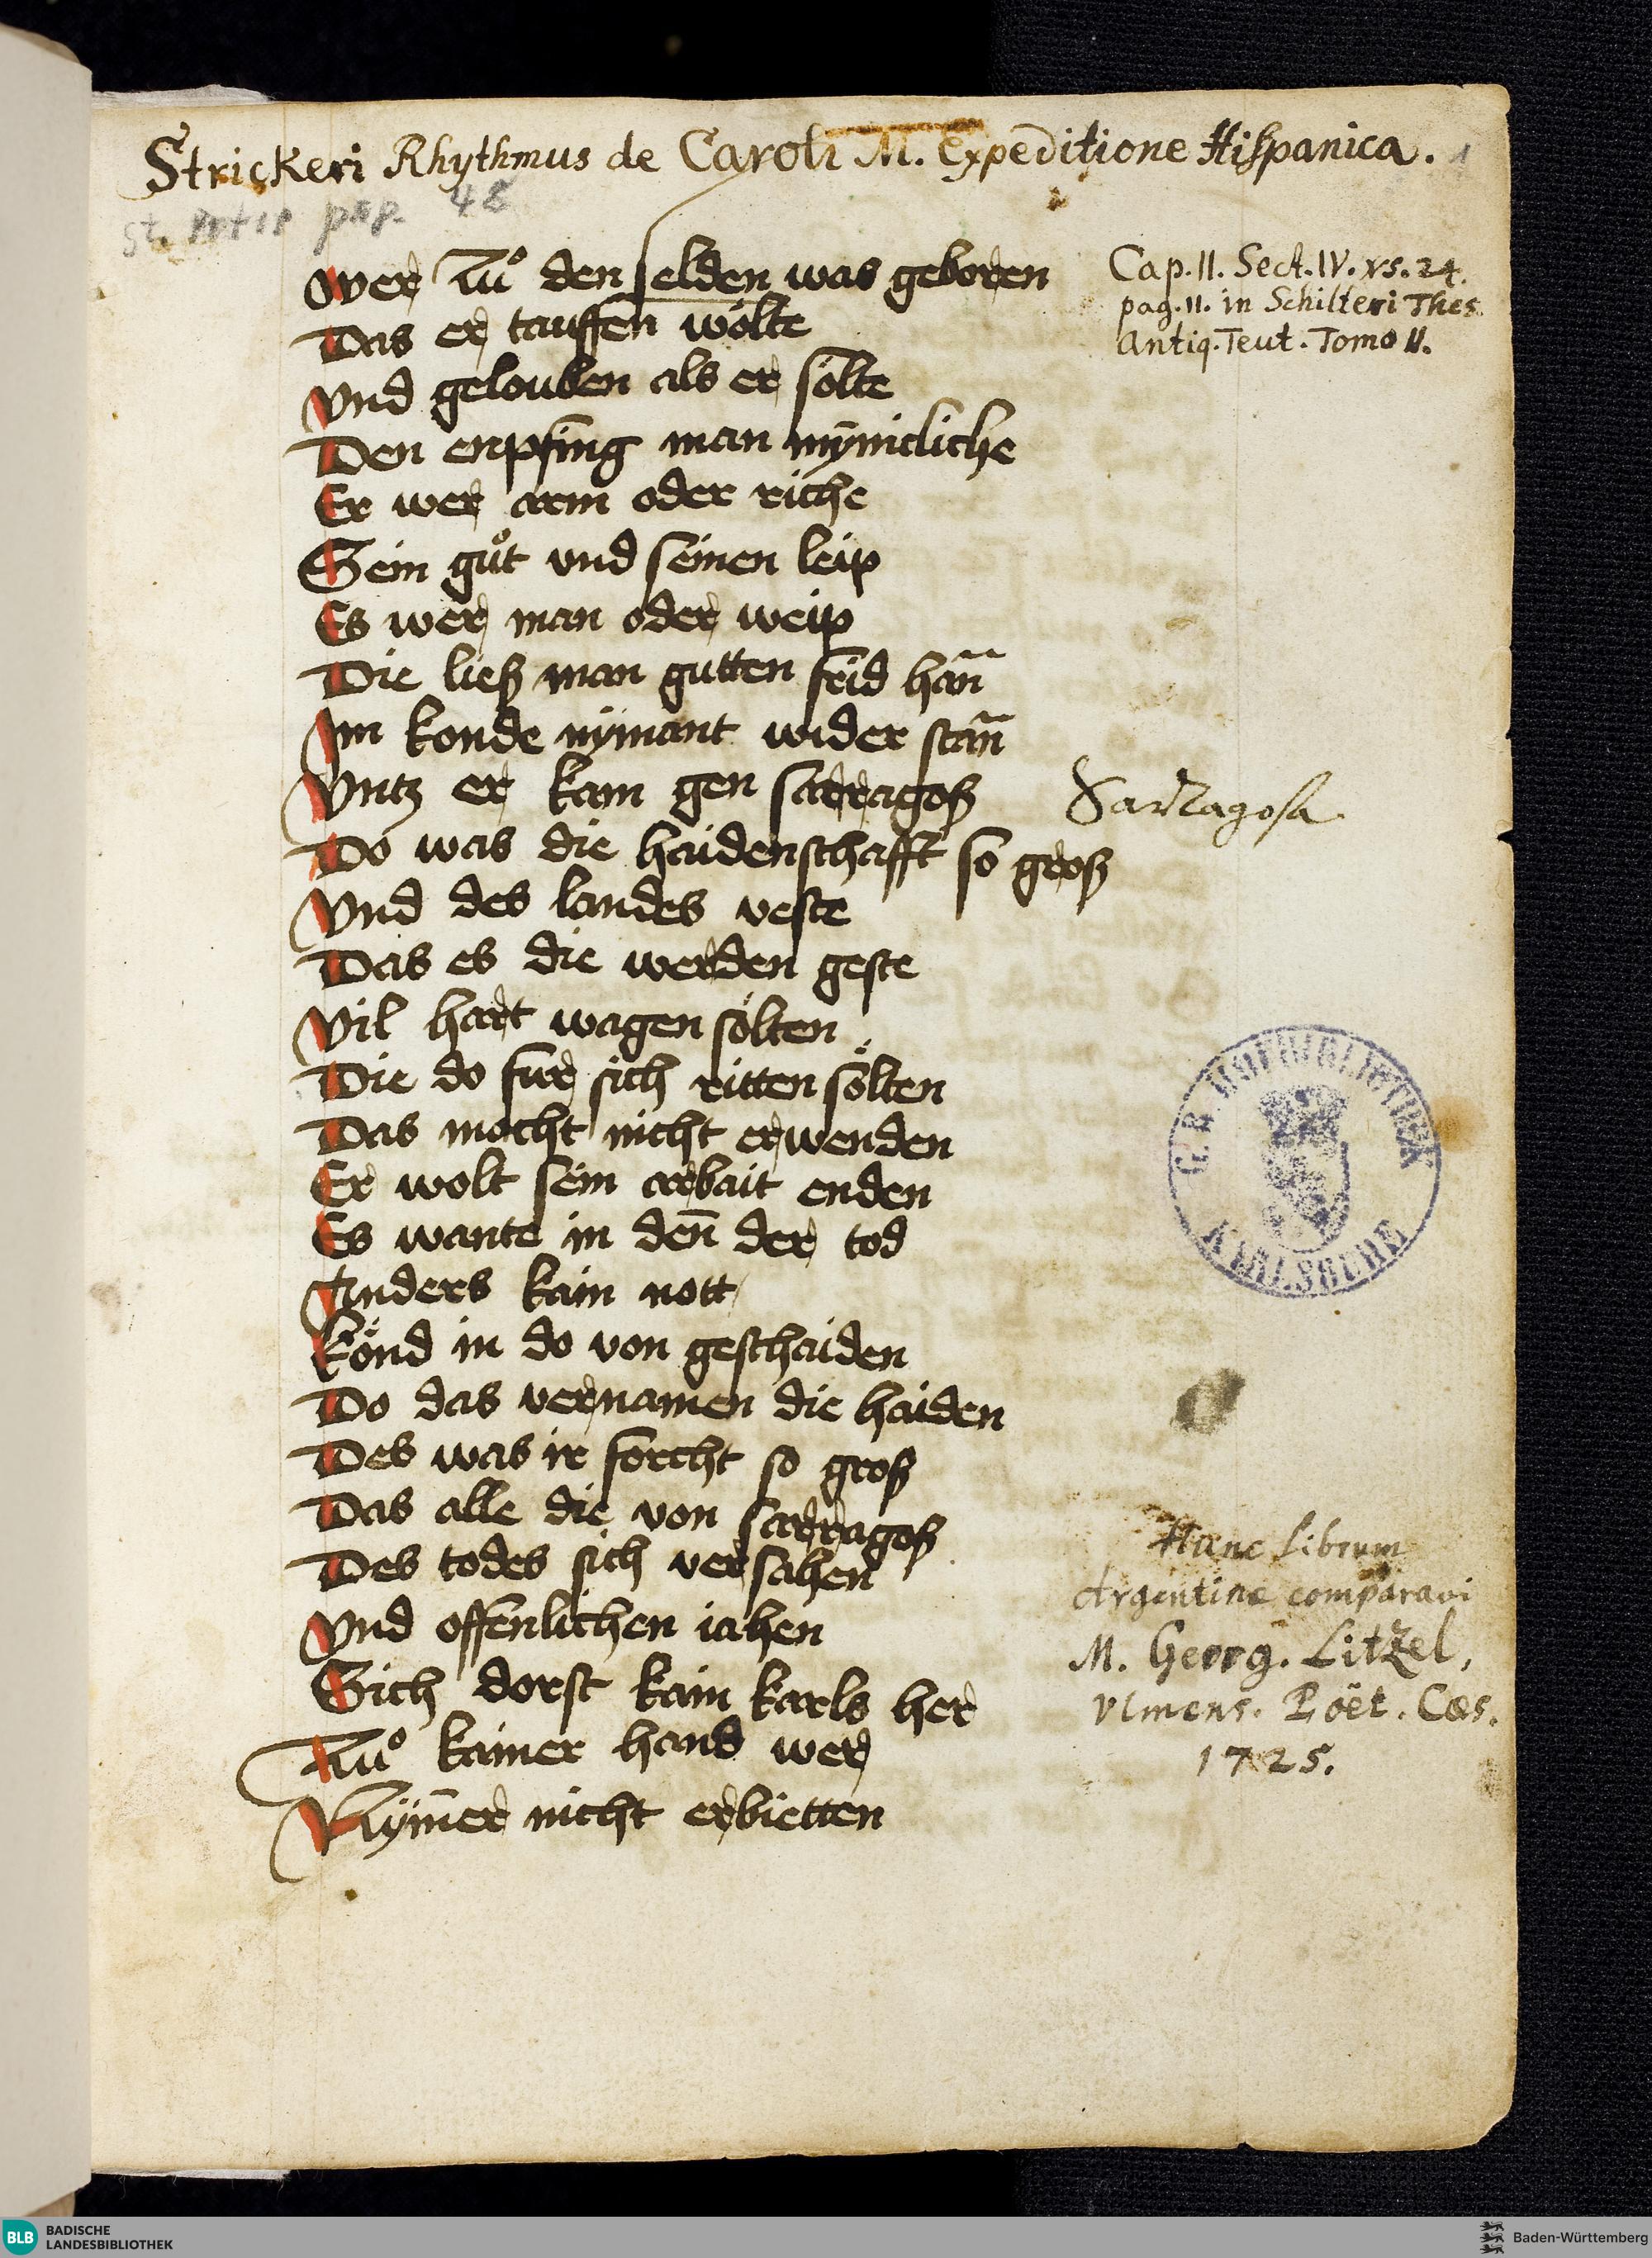 Strickeri Rhythmus de Caroli M. Expeditione Hispanica. 1
St. pap. 48
Wer zuͦ den selden was geboren
Cap. II. Sect. IV. vs. 24.
pag. 11. in Schilteri Thes.
Antiq. Teut. Tomo II.
Das er tauffen wölte
Vnd gelouben als er sölte
Den enpfing man mynicliche
Er wer arm oder riche
Sein guͦt vnd seinen leip
Es wer man oder weip
Die ließ man gutten frid hañ
Im konde nÿmant wider stañ
Vntz er kam gen sarragoß
Sarragosa
Do was die haidenschafft so groß
Vnd des landes veste
Das es die werden geste
Vil hart wagen sölten
Die do fur sich ritten sölten
Das mocht nicht erwenden
Er wolt sein arbait enden
Es wante in deñ der tod
Anders kain nott
Könd in do von geschaiden
Do das vernamen die haiden
Des was ir forcht so groß
Das alle die von sarragoß
Des todes sich versahen
Vnd offenlichen iahen
Sich dorst kain karls her
Zuͦ kainer hand wer
Nÿmer nicht erbietten
Hunc librum
Argentinae comparavi
M. Georg. Litzel,
Vlmens. Poët. Caes.
1725.
G. B. HOFBIBLIOTHEK
KARLSRUHE
BLB BADISCHE
LANDESBIBLIOTHEK
Baden-Württemberg